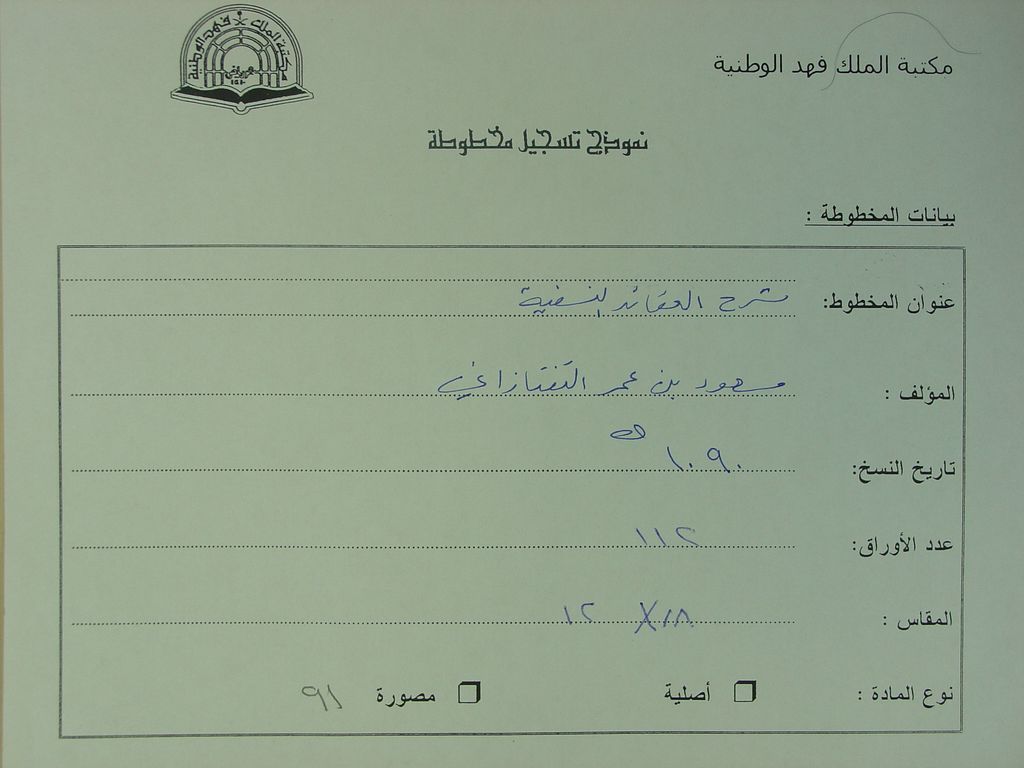 مكتبة الملك فهد الوطنية
مكتبة الملك فهد الوطنية
نموذج تسجيل مخطوطة
بيانات المخطوطة :
عنوان المخطوط: شرح العقائد النسفية
المؤلف : مسعود بن عمر التفتازاني
تاريخ النسخ: ١٠٩٠ هـ
عدد الأوراق: ١١٢
المقاس : ١٨ X ١٢
نوع المادة : ❒ أصلية ❒ مصورة ٩١